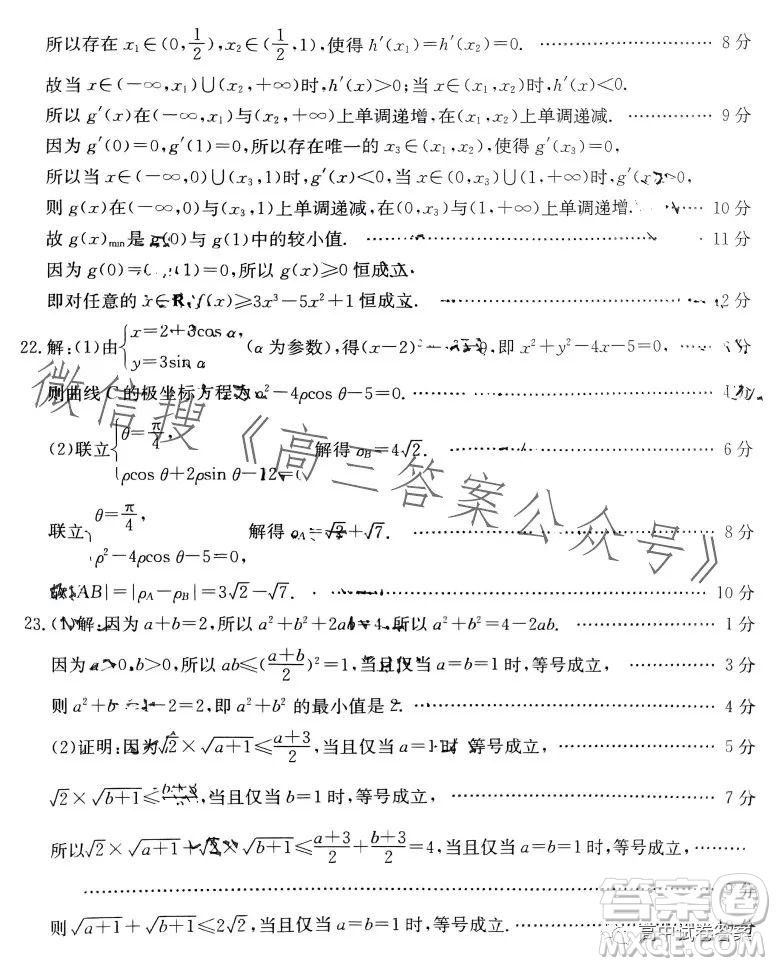 所以存在 x₁∈(0,1/2),x₂∈(1/2,1),使得 h′(x₁)=h′(x₂)=0. 8 分
故当 x∈(−∞,x₁)∪(x₂,+∞)时,h′(x)>0;当 x∈(x₁,x₂)时,h′(x)<0.
所以 g′(x)在(−∞,x₁)与(x₂,+∞)上单调递增,在(x₁,x₂)上单调递减. 9 分
因为 g′(0)=0,g′(1)=0,所以存在唯一的 x₃∈(x₁,x₂),使得 g′(x₃)=0,
所以当 x∈(−∞,0)∪(x₃,1)时,g′(x)<0,当 x∈(0,x₃)∪(1,+∞)时,g′(x)>0,
则 g(x)在(−∞,0)与(x₃,1)上单调递减,在(0,x₃)与(1,+∞)上单调递增. 10 分
故 g(x)min是 g(0)与 g(1)中的较小值. 11 分
因为 g(0)= (1)=0,所以 g(x)≥0 恒成立.
即对任意的 x∈R,f(x)≥3x³−5x²+1 恒成立. 12 分
22.解:(1)由{x=2+3cos α, y=3sin α (α 为参数),得(x−2)² ,即 x²+y²−4x−5=0, 分
则曲线 C 的极坐标方程为ρ²−4ρcos θ−5=0. 4
(2)联立{θ=π/4, ρcos θ+2ρsin θ−12=0 解得 ρB=4√2. 6 分
联立{θ=π/4, ρ²−4ρcos θ−5=0, 解得 ρA=√2+√7. 8 分
故|AB|=|ρA−ρB|=3√2−√7. 10 分
23.(1)解:因为 a+b=2,所以 a²+b²+2ab=4,所以 a²+b²=4−2ab. 1 分
因为 a>0,b>0,所以 ab≤((a+b)/2)²=1,当且仅当 a=b=1 时,等号成立, 3 分
则 a²+b 2=2,即 a²+b² 的最小值是 2. 4 分
(2)证明:因为√2×√(a+1)≤(a+3)/2,当且仅当 a=1 时,等号成立, 5 分
√2×√(b+1)≤(b+3)/2,当且仅当 b=1 时,等号成立, 7 分
所以√2×√(a+1)+√2×√(b+1)≤(a+3)/2+(b+3)/2=4,当且仅当 a=b=1 时,等号成立,
9 分
则√(a+1)+√(b+1)≤2√2,当且仅当 a=b=1 时,等号成立. 分
微信搜《高三答案公众号》
答案圈
高中试卷答案